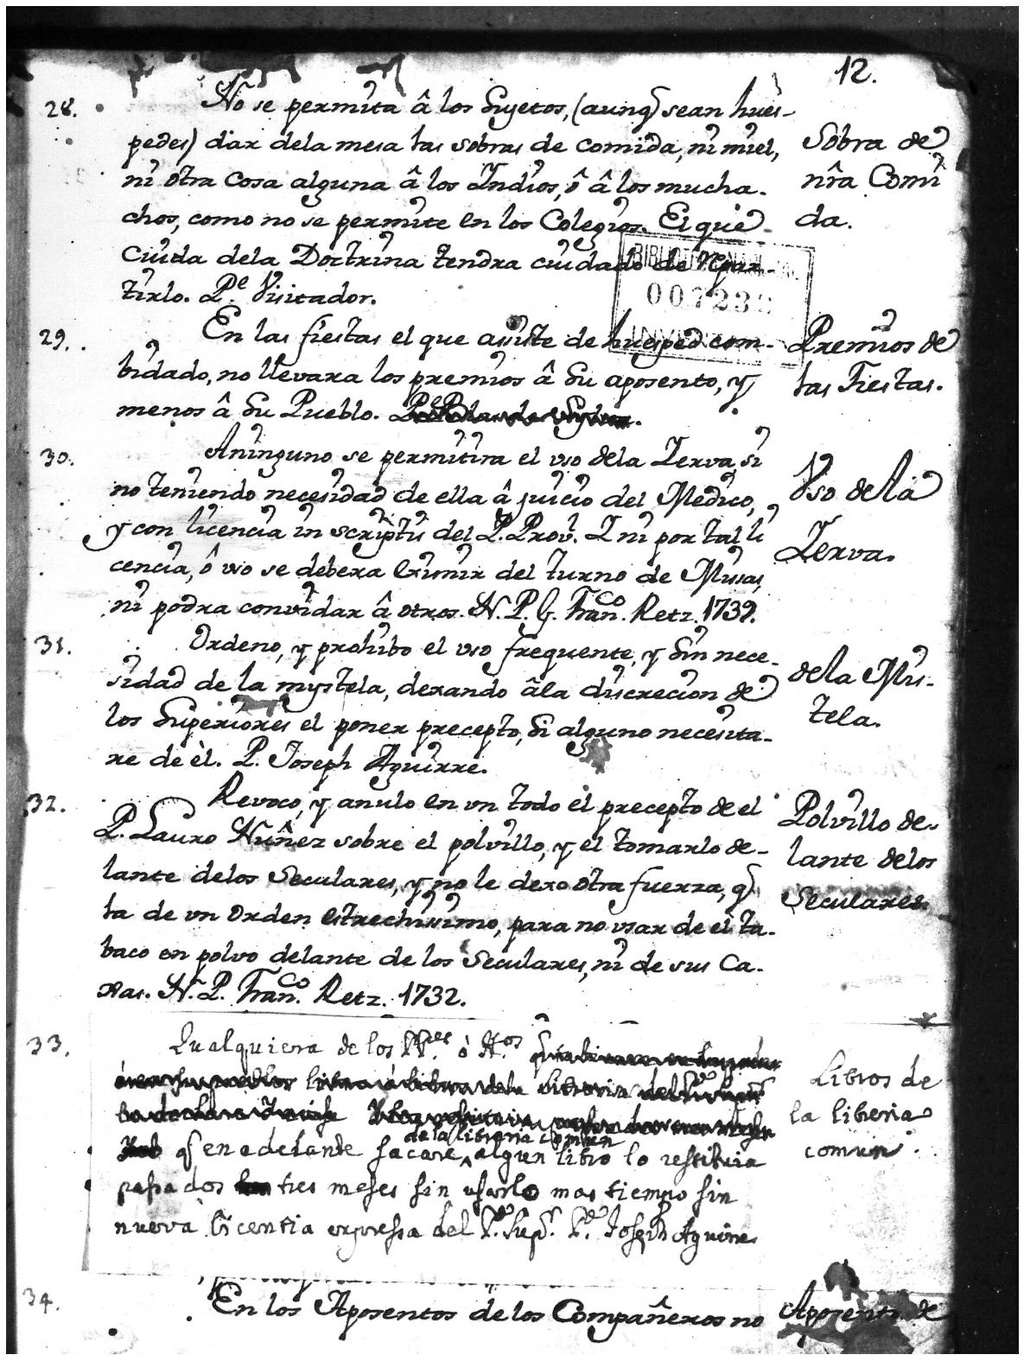 12.
28. No se permita â los Sujetos, (aunq̃ sean hues-
pedes) dar dela mesa las sobras de comida, ni miel,
ni otra cosa alguna â los Indios, ô â los mucha-
chos, como no se permite en los Colegios. El que
cuida dela Doctrina tendra cuidado de repar-
tirlo. P.e Visitador.
Sobra de
nr̃a Comi
da.
BIBLIOTECA NACIONAL
INVENTARIO
29. En las fiestas el que asiste de huesped com-
bidado, no llevara los premios â su aposento, y
menos â su Pueblo.
Premios de
las Fiestas.
30. A ninguno se permitira el uso dela Yerva, si
no teniendo necesidad de ella â juicio del Medico,
y con licencia in scriptis del P. Prov.l Y ni por tal li
cencia, ô uso se debera eximir del turno de Misas,
ni podra convidar â otros. N. P. G. Fran.co Retz. 1739.
Uso dela
Yerva.
31. Ordeno, y prohibo el uso frequente, y sin nece-
sidad de la mystela, dexando âla discrecion de
los Superiores el poner precepto, si alguno necesita-
re de èl. P. Joseph Aguirre.
dela Mis-
tela.
32. Revoco, y anulo en un todo el precepto de el
P. Lauro Nuñez sobre el polvillo, y el tomarlo de-
lante delos Seculares, y no le dexo otra fuerza, q̃
la de un orden estrechissimo, para no usar de el ta-
baco en polvo delante de los Seculares, ni de sus Ca-
xas. N. P. Fran.co Retz. 1732.
Polvillo de-
lante delos
Seculares.
33. Qualquiera de los PP.es ô H.os
q̃ en adelante sacare de la libreria comun algun libro lo restituia
passados tres meses sin usarlo mas tiempo sin
nueva licentia expressa del P.e Sup.r P.e Joseph Aguirre
Libros de
la libreria
comun.
34. En los Aposentos de los Compañeros no
Aposentos de